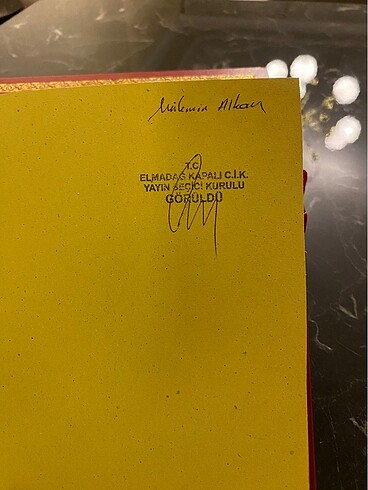 Alkan
T.C.
ELMADAĞ KAPALI C.İ.K.
YAYIN SEÇİCİ KURULU
GÖRÜLDÜ